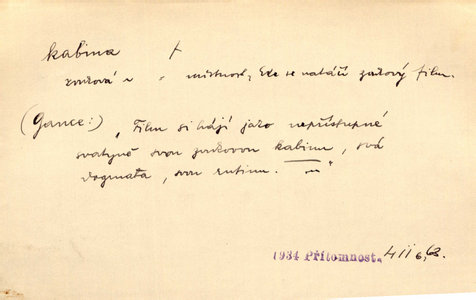 kabina †
zvuková ~ „ místnost, kde se natáčí zvukový film.
(Gance:) „Film si hájí jako nepřístupné
svatyně svou zvukovou kabinu, svá
dogmata, svou rutinu. —"
1934 Přítomnost, 4 II 6, 63.